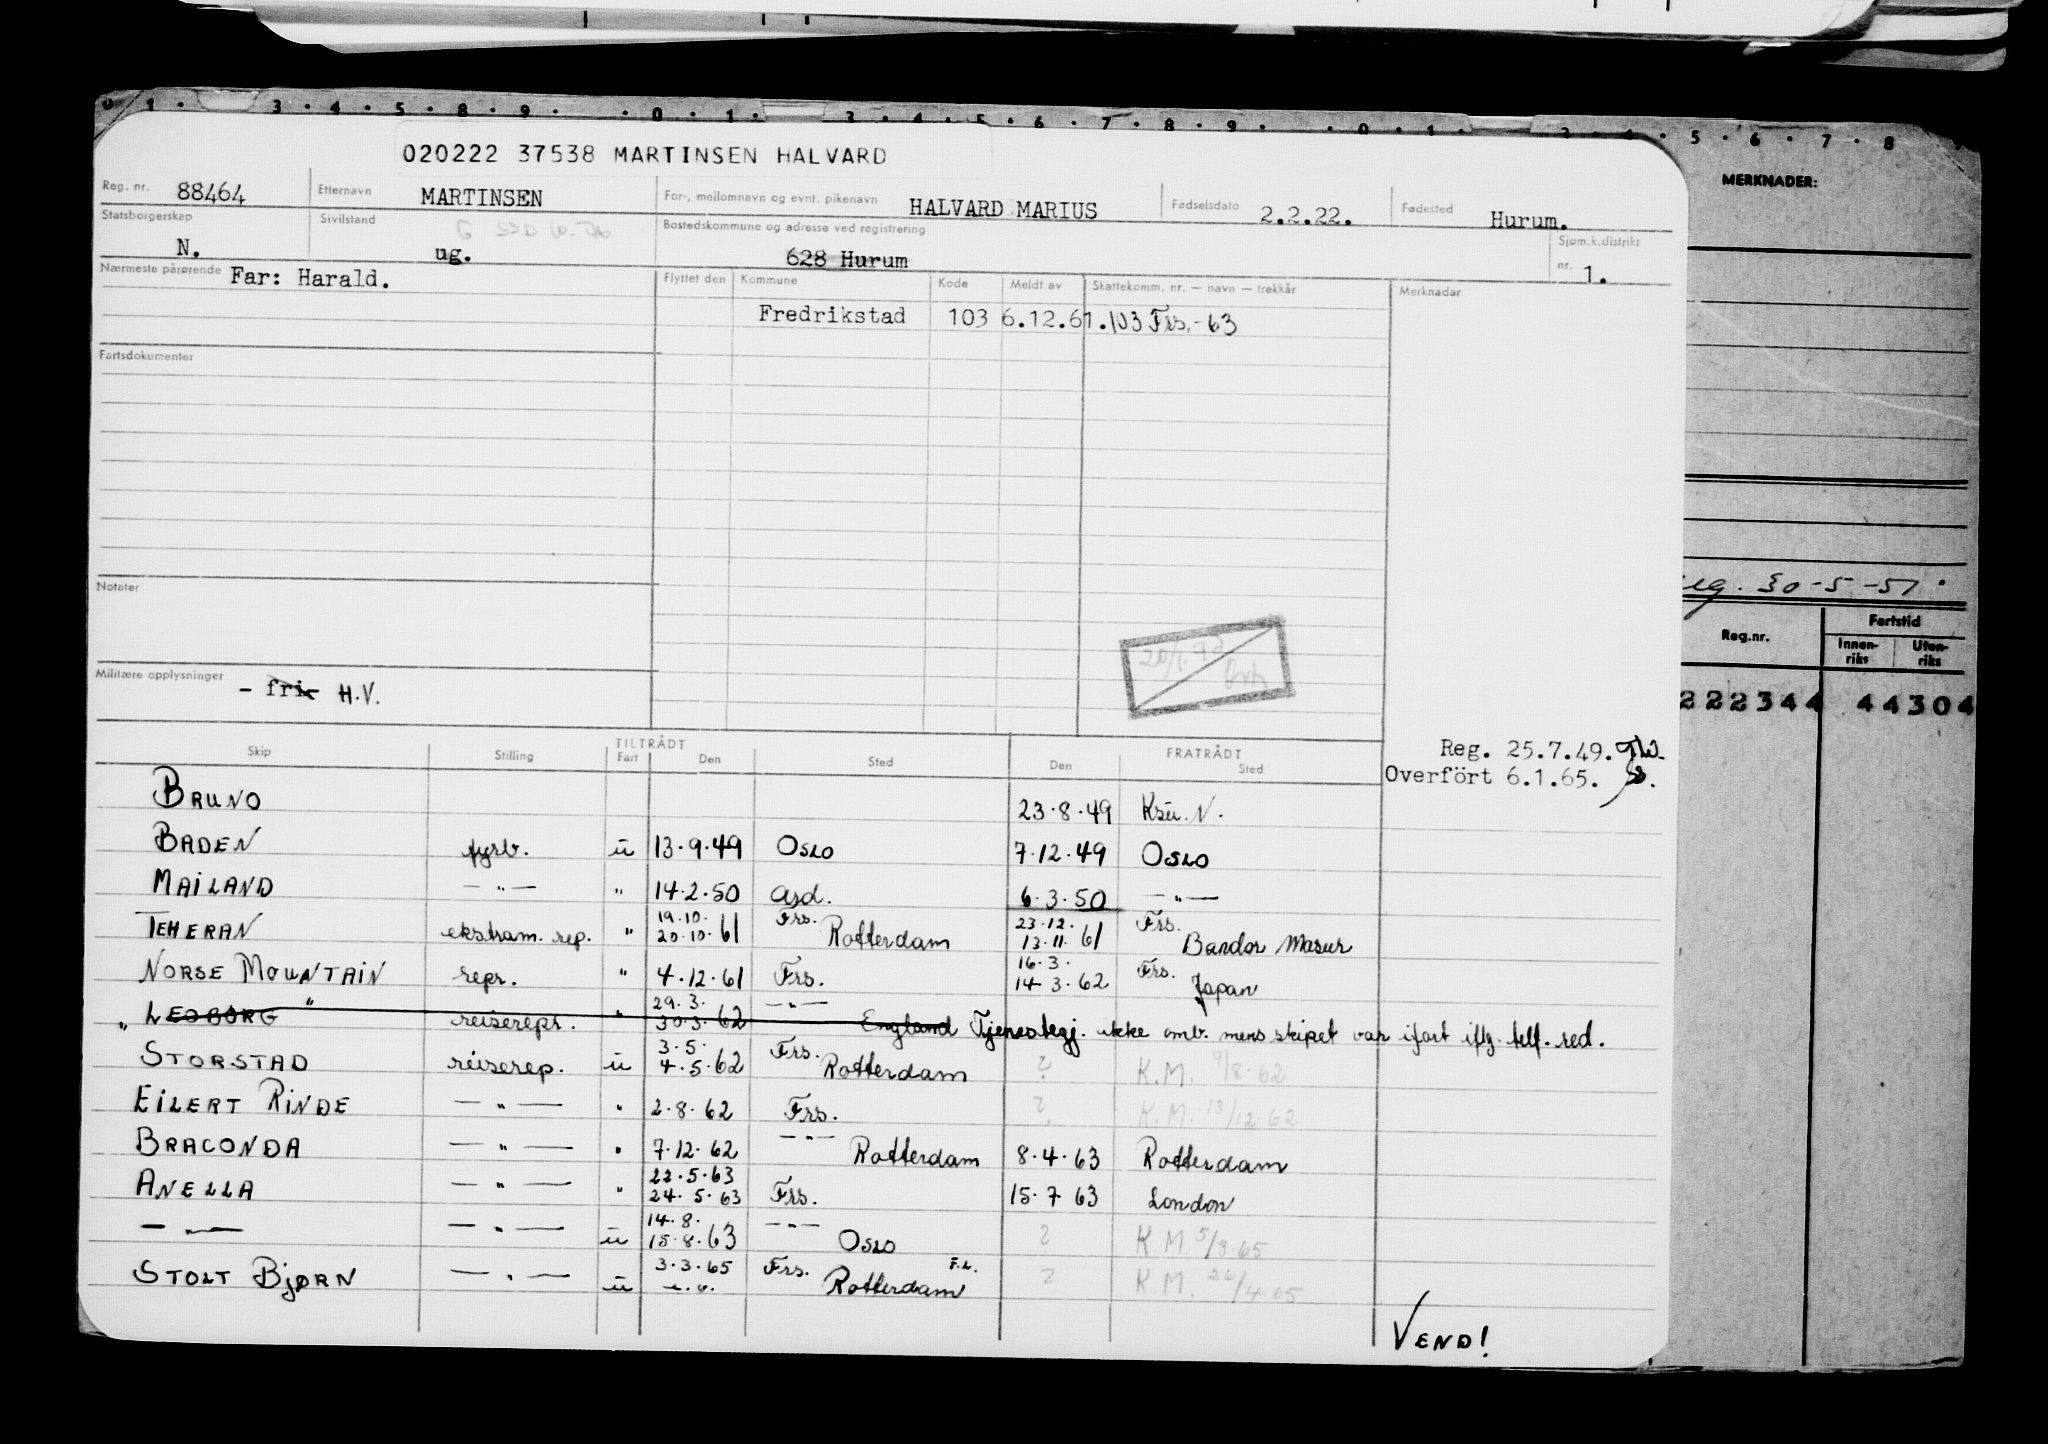 0 1 · 3 · 4 · 5 · 8 · 9 · · 0 · 1 · 3 · 4 · 5 · 6 · 7 · 8 · 9 · · 0 · 1 · 3 · 4 · 5 · 6 · 7 · 8
020222 37538 MARTINSEN HALVARD
MERKNADER:
Reg. nr. 88464 Etternavn MARTINSEN For-, mellomnavn og evnt. pikenavn HALVARD MARIUS Fødselsdato 2.2.22. Fødested Hurum.
Statsborgerskap N. Sivilstand ug. Bostedskommune og adresse ved registrering 628 Hurum Sjøm.k.distrikt nr. 1.
Nærmeste pårørende Far: Harald. Flyttet den Kommune Kode Meldt av Skattekomm. nr. — navn — trekkår Merknader
Fredrikstad 103 6.12.61. 103 Frs.-63
Fartsdokumenter
Notater
30-5-51
Reg.nr. Fartstid
Innen-riks Uten-riks
222344 44304
Militære opplysninger - fri H.V.
Reg. 25.7.49.
Overført 6.1.65.
TILTRÅDT FRATRÅDT
Skip Stilling Fart Den Sted Den Sted
BRUNO 23.8.49 N.
BADEN fyrb. u 13.9.49 OSLO 7.12.49 OSLO
MAILAND — " — " 14.2.50 6.3.50 — " —
TEHERAN ekstram. rep. " 19.10. 20.10.61 Frs. Rotterdam 23.12. 13.11.61 Frs. Bandar Masur
NORSE MOUNTAIN repr. " 4.12.61 Frs. 16.3. 14.3.62 Frs. Japan
" LEOBORG " reiserepr. " 29.3. 30.3.62 — " — England Tjenestegj. ikke omb. mens skipet var ifart iflg. telf. red.
STORSTAD reiserep. u 3.5. 4.5.62 Frs. Rotterdam ? K.M. 9/8.62
EILERT RINDE — " — " 2.8.62 Frs. ? K.M. 13/12.62
BRACONDA — " — " 7.12.62 — " — Rotterdam 8.4.63 Rotterdam
ANELLA — " — " 22.5.63 24.5.63 Frs. 15.7.63 London
— " — — " — u 14.8. 15.8.63 — " — OSLO ? K.M. 5/3.65
STOLT BJØRN — " — u 3.3.65 Frs. Rotterdam F.L. ? K.M. 26/4.65
VEND!